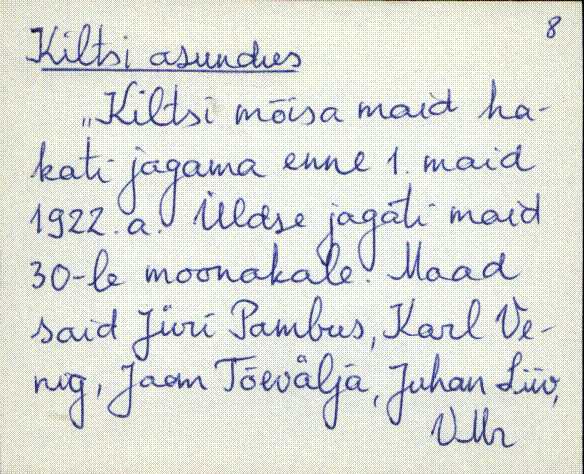 8
Kiltsi asundus
„Kiltsi mõisa maid ha-
kati jagama enne 1. maid
1922. a. Üldse jagati maid
30-le moonakale. Maad
said Jüri Pambus, Karl Ve-
nig, Jaan Tõeväljä, Juhan Liiv,
VMr